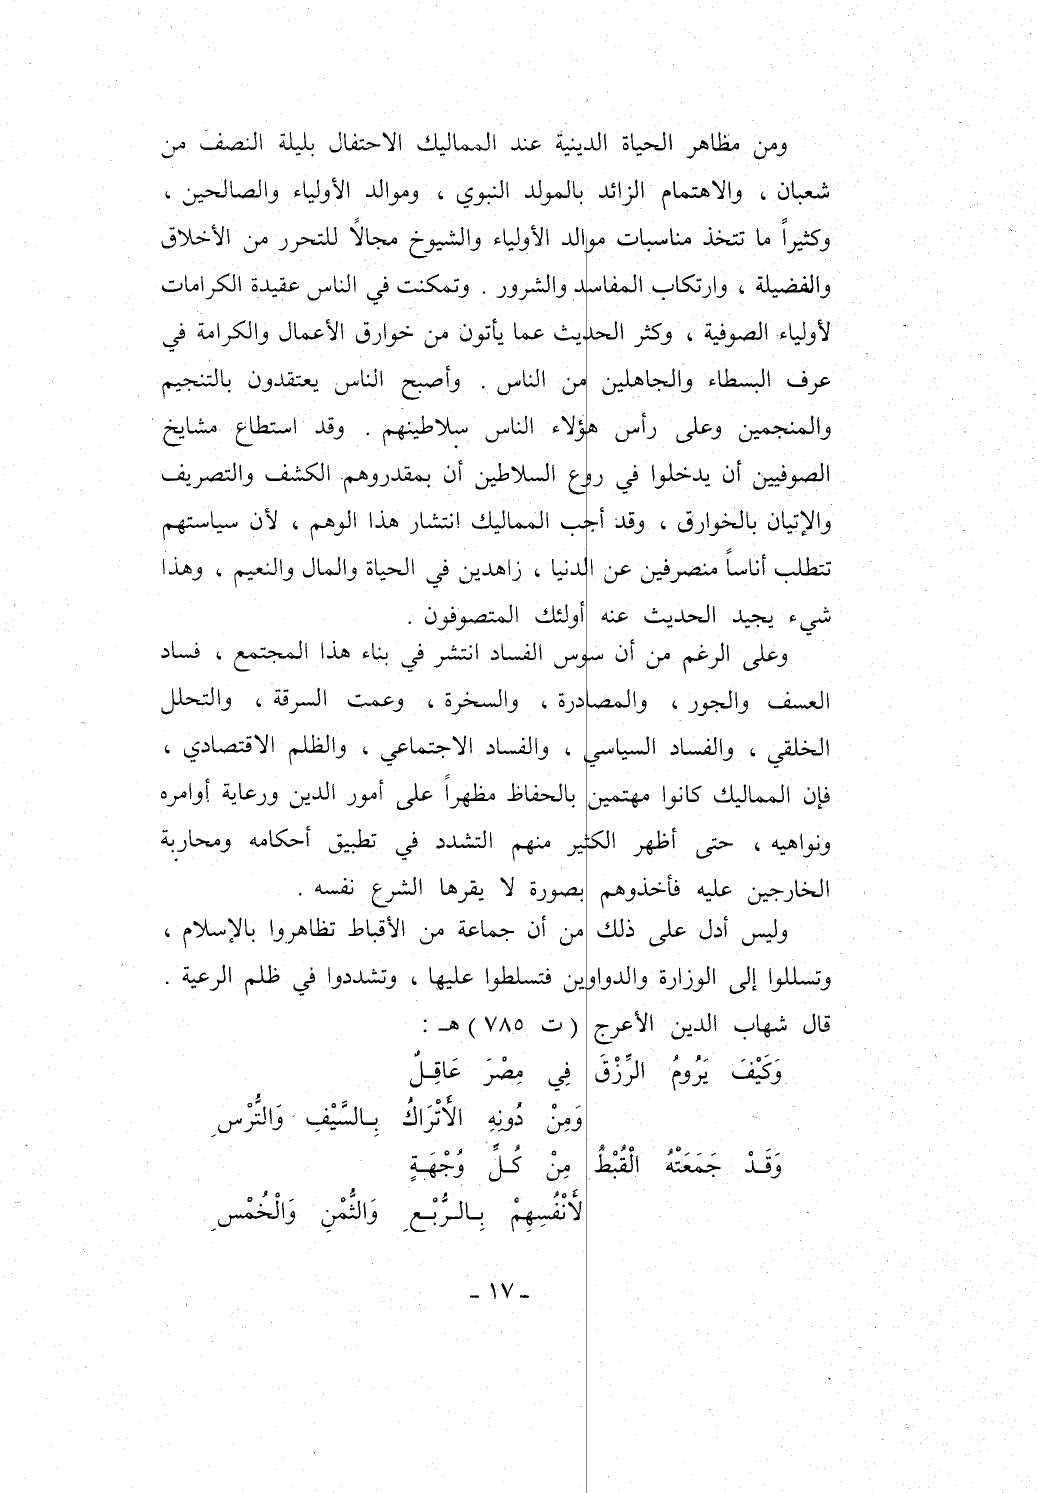 ومن مظاهر الحياة الدينية عند المماليك الاحتفال بليلة النصف من
شعبان ، والاهتمام الزائد بالمولد النبوي ، وموالد الأولياء والصالحين ،
وكثيراً ما تتخذ مناسبات موالد الأولياء والشيوخ مجالاً للتحرر من الأخلاق
والفضيلة ، وارتكاب المفاسد والشرور . وتمكنت في الناس عقيدة الكرامات
لأولياء الصوفية ، وكثر الحديث عما يأتون من خوارق الأعمال والكرامة في
عرف البسطاء والجاهلين من الناس . وأصبح الناس يعتقدون بالتنجيم
والمنجمين وعلى رأس هؤلاء الناس سلاطينهم . وقد استطاع مشايخ
الصوفيين أن يدخلوا في روع السلاطين أن بمقدروهم الكشف والتصريف
والإتيان بالخوارق ، وقد أجب المماليك انتشار هذا الوهم ، لأن سياستهم
تتطلب أناساً منصرفين عن الدنيا ، زاهدين في الحياة والمال والنعيم ، وهذا
شيء يجيد الحديث عنه أولئك المتصوفون .
وعلى الرغم من أن سوس الفساد انتشر في بناء هذا المجتمع ، فساد
العسف والجور ، والمصادرة ، والسخرة ، وعمت السرقة ، والتحلل
الخلقي ، والفساد السياسي ، والفساد الاجتماعي ، والظلم الاقتصادي ،
فإن المماليك كانوا مهتمين بالحفاظ مظهراً على أمور الدين ورعاية أوامره
ونواهيه ، حتى أظهر الكثير منهم التشدد في تطبيق أحكامه ومحاربة
الخارجين عليه فأخذوهم بصورة لا يقرها الشرع نفسه .
وليس أدل على ذلك من أن جماعة من الأقباط تظاهروا بالإسلام ،
وتسللوا إلى الوزارة والدواوين فتسلطوا عليها ، وتشددوا في ظلم الرعية .
قال شهاب الدين الأعرج ( ت ٧٨٥ ) هـ :
وَكَيْفَ يَرُومُ الرِّزْقَ فِي مِصْرَ عَاقِلٌ
وَمِنْ دُونِهِ الأَتْرَاكُ بِالسَّيْفِ وَالتُّرْسِ
وَقَدْ جَمَعَتْهُ الْقُبْطُ مِنْ كُلِّ وُجْهَةٍ
لأَنْفُسِهِمْ بِالرُّبْعِ وَالثُّمْنِ وَالْخُمْسِ
- ١٧ -